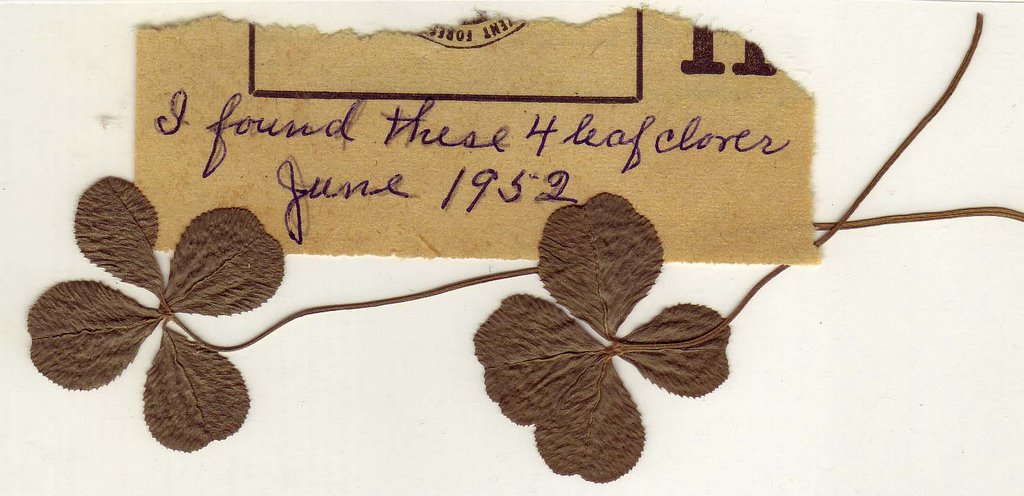 I found these 4 leaf clover
June 1952